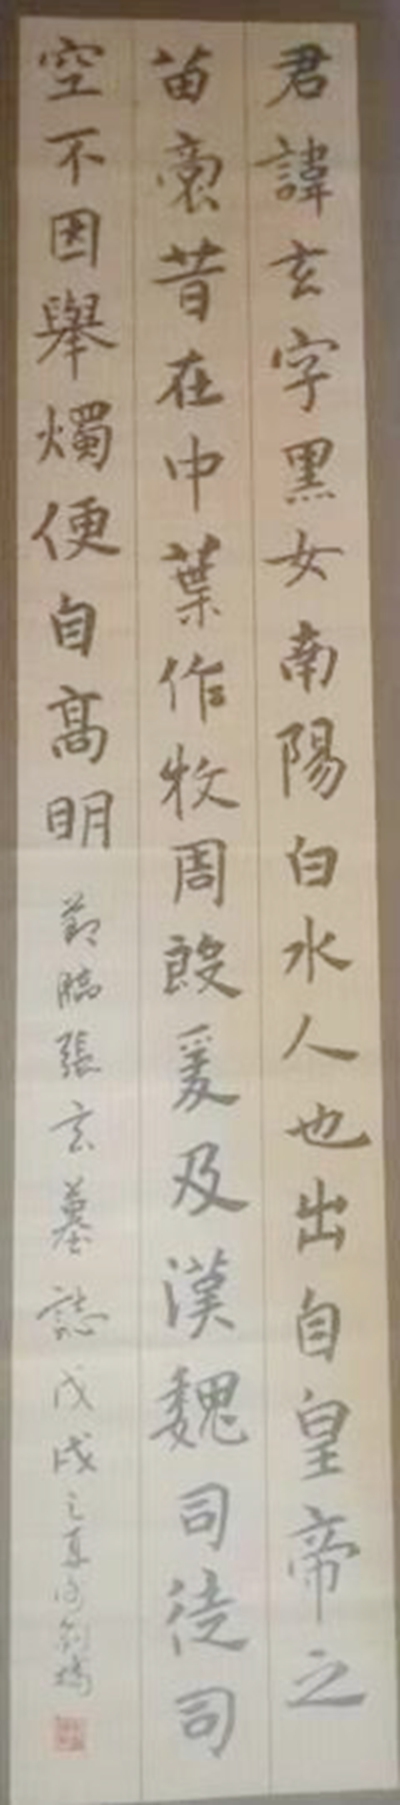 君諱玄字黑女南陽白水人也出自皇帝之
苗裔昔在中葉作牧周殷爰及漢魏司徒司
空不因舉燭便自高明 節臨張玄墓誌 戊戌之夏